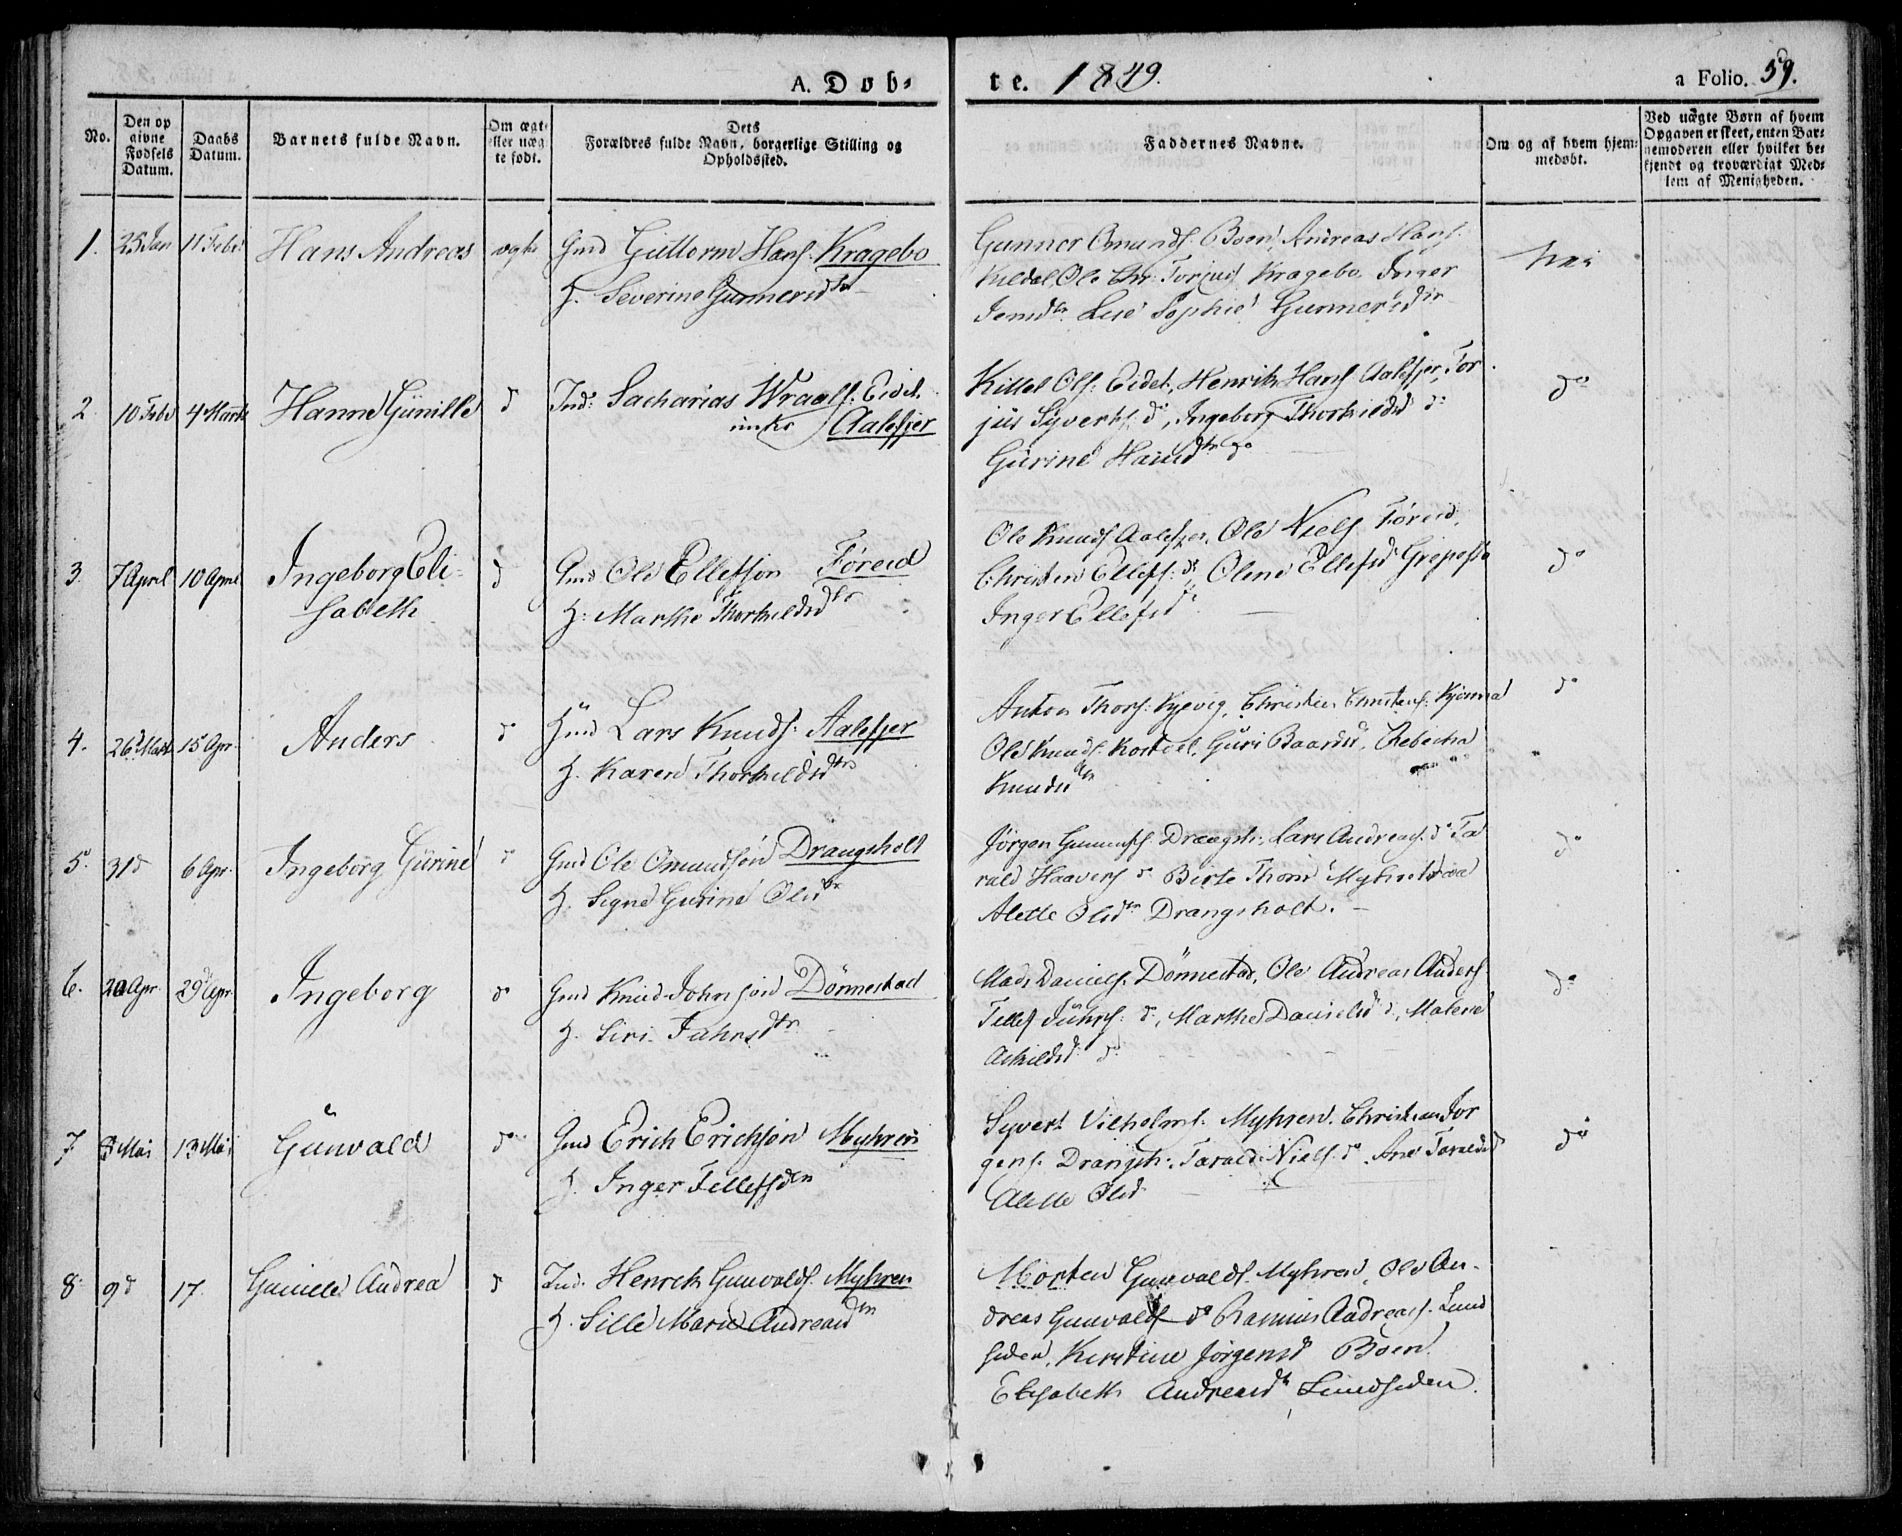 A. Døb- te. 1849. a Folio. 59.
No. Den op givne Fødsels Datum. Daabs Datum. Barnets fulde Navn. Om ægt- eller uæg te født. Dets Forældres fulde Navn, borgerlige Stilling og Opholdssted. Faddernes Navne. Om og af hvem hjem- medøbt. Ved uægte Børn af hvem Opgaven er skeet, enten Bar- nemoderen eller hvilket be- kjendt og troværdigt Med- lem af Menigheden.
1. 25 Jan 11 Febr Hans Andreas ægte Gmd Guttorm Hans. Kragebo
H. Severine Gunnersdtr
Gunner Omunds. Boen, Andreas Hans.
Kuldal, Ole Chr. Torjus. Kragebo Inger
Jensdtr Lise Sophie Gunnersdtr
Nei
2. 10 Febr 4 Marts Hanne Gunille d Ind: Sacharias Wraals. Eidet
under Aalefjer
Kittel Ols. Eidet, Henrik Hans Aalefjer, Tor
jus Syverts. do, Ingeborg Thorkildsd do
Gurine Hansdtr do
do
3. 7 April 10 April Ingeborg Eli-
sabeth
d Gmd Ole Ellefsøn Føreid
H. Marthe Thorkildsdtr
Ole Knuds Aalefjer, Ole Niels Føreid,
Christen Ellefs. do, Olene Ellefsd Grepstø
Inger Ellefsd
do
4. 26 Marts 15 Apr. Anders do Gmd Lars Knuds. Aalefjer
H. Karen Thorkildsdtr
Anton Thors. Kjevig, Christen Christens. Kjønna
Ole Knuds. Kostøl, Guri Baardsd, Rebecha
Knudsdtr
do
5. 31 d 6 Apr. Ingeborg Gurine d Gmd Ole Omundsøn Drangsholt
H. Signe Gurine Olsdtr
Jørgen Gunnufs. Drangsh., Lars Andreas. do Ta
rald Haavors do Birte Thors Myhrestraa
Alette Olsdtr Drangsholt.
do
6. 20 Apr. 29 Apr. Ingeborg do Gmd Knud Johnsøn Dønnestad
H. Siri Jahnsdtr
Mads Daniels. Dønnestad, Ole Andreas Anders
Tellef Jahns. d, Marthe Danielsd d, Malene
Askildsd do
do
7. 8 Mai 13 Mai Gunvald do Gmd Erich Erichsøn Myhren
H. Inger Tellefsdtr
Syvert Vilholms. Myhren, Christian Jør
gens. Drangsh., Tarald Niels. do, Ane Taraldsd
Alette Olsd
do
8. 9 d 17. Gunille Andrea d Ind. Henrik Gunvalds. Myhren
H. Sille Marie Andreasdtr
Morten Gunvalds. Myhren, Ole An-
dreas Gunvalds do Rasmus Andreas. Lund
siden, Kirstine Jørgensd Boen
Elisabeth Andreasdtr Lundsiden.